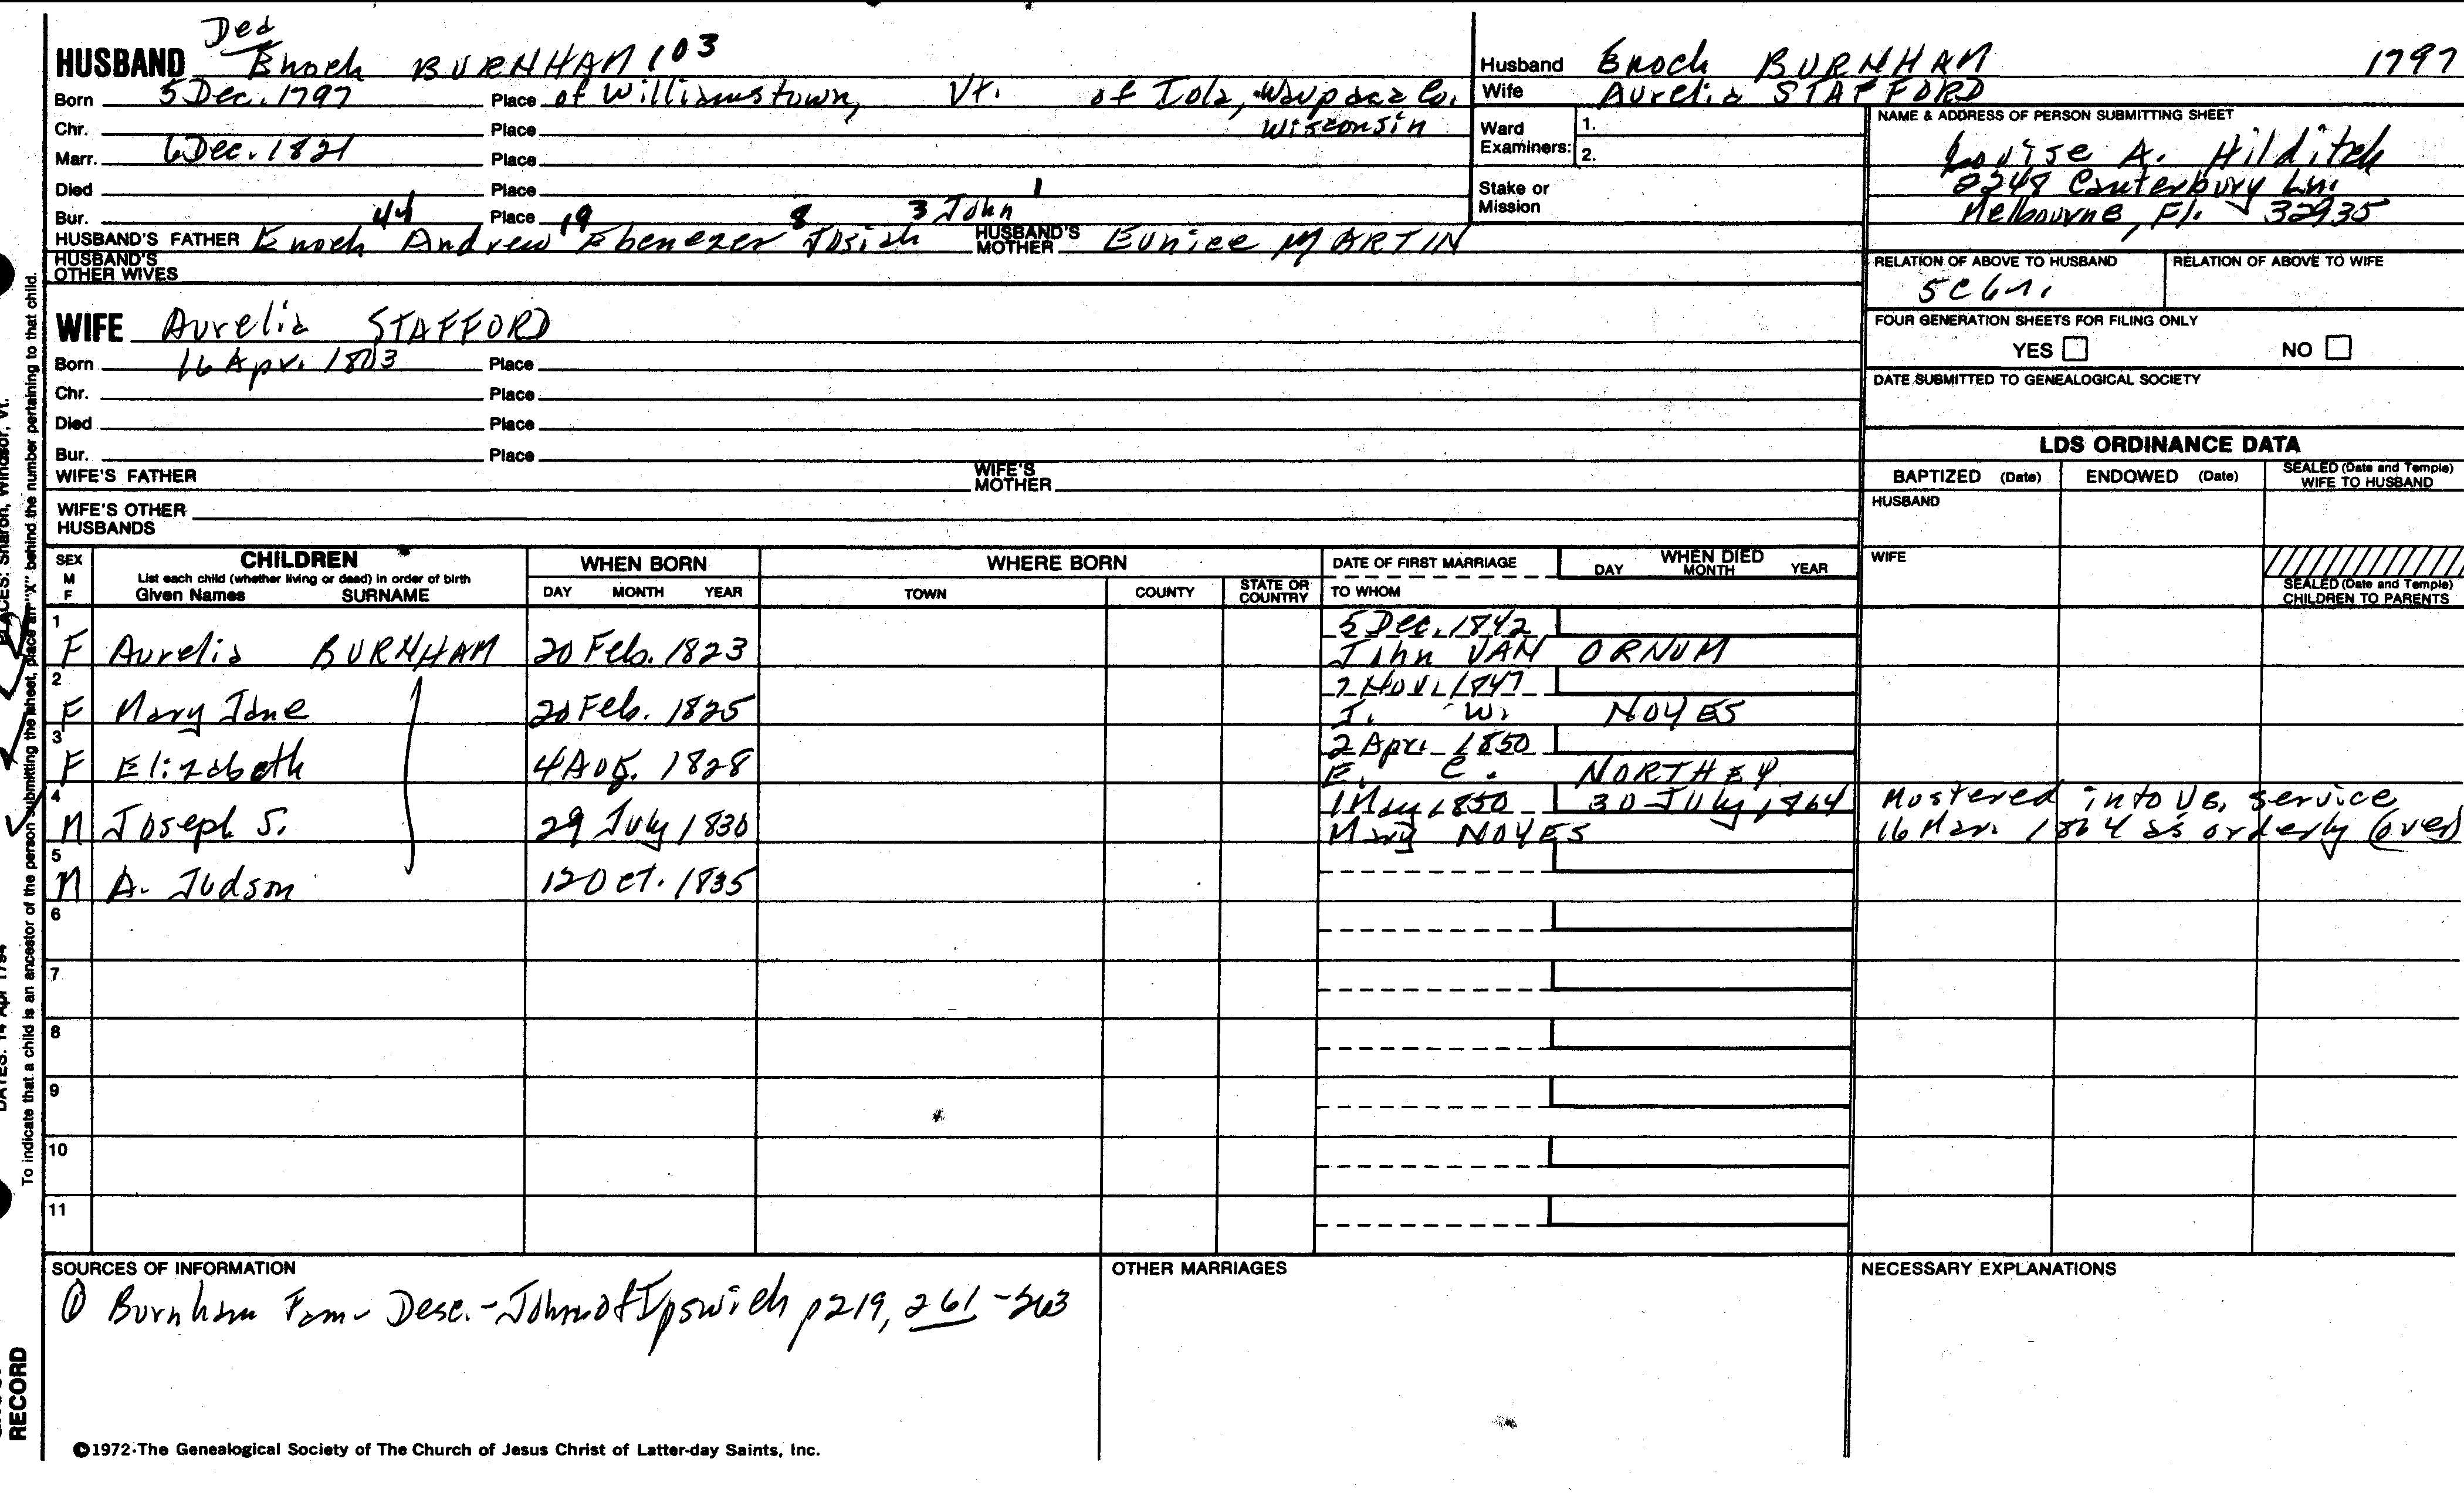 Ded
HUSBAND Enoch BURNHAM 103
Born 5 Dec. 1797 Place of Williamstown, Vt. of Iola, Waupaca Co.
Chr. Place Wisconsin
Marr. 6 Dec. 1821 Place
Died Place
Bur. Place
44 19 8 3 John 1
HUSBAND'S FATHER Enoch Andrew Ebenezer Josiah HUSBAND'S MOTHER Eunice MARTIN
HUSBAND'S OTHER WIVES
WIFE Aurelia STAFFORD
Born 16 Apr. 1803 Place
Chr. Place
Died Place
Bur. Place
WIFE'S FATHER WIFE'S MOTHER
WIFE'S OTHER HUSBANDS
Husband Enoch BURNHAM 1797
Wife Aurelia STAFFORD
Ward Examiners: 1.
2.
Stake or Mission
NAME & ADDRESS OF PERSON SUBMITTING SHEET
Louise A. Hilditch
2248 Canterbury Ln.
Melbourne, Fl. 32935
RELATION OF ABOVE TO HUSBAND RELATION OF ABOVE TO WIFE
5C6r.
FOUR GENERATION SHEETS FOR FILING ONLY
YES NO
DATE SUBMITTED TO GENEALOGICAL SOCIETY
LDS ORDINANCE DATA
BAPTIZED (Date) ENDOWED (Date) SEALED (Date and Temple) WIFE TO HUSBAND
HUSBAND
WIFE
SEALED (Date and Temple) CHILDREN TO PARENTS
SEX M F CHILDREN WHEN BORN WHERE BORN DATE OF FIRST MARRIAGE WHEN DIED
List each child (whether living or dead) in order of birth
Given Names SURNAME DAY MONTH YEAR TOWN COUNTY STATE OR COUNTRY TO WHOM DAY MONTH YEAR
1 5 Dec. 1842
F Aurelia BURNHAM 20 Feb. 1823 John VAN ORNUM
2 2 Nov. 1847
F Mary Jane 20 Feb. 1825 I. W. NOYES
3 2 Apr. 1850
F Elizabeth 4 Aug. 1828 E. C. NORTHEY
4 1 May 1850 30 July 1864 Mustered into US. service
M Joseph S. 29 July 1830 Mary NOYES 16 Mar. 1864 as orderly (over)
5
M A. Judson 12 Oct. 1835
6
7
8
9
10
11
SOURCES OF INFORMATION
① Burnham Fam- Desc.- John of Ipswich p219, 261-263
OTHER MARRIAGES
NECESSARY EXPLANATIONS
©1972·The Genealogical Society of The Church of Jesus Christ of Latter-day Saints, Inc.
PLACES: Sharon, Windsor, Vt.
To indicate that a child is an ancestor of the person submitting the sheet, place an "X" behind the number pertaining to that child.
DATES: 14 Apr 1794
RECORD